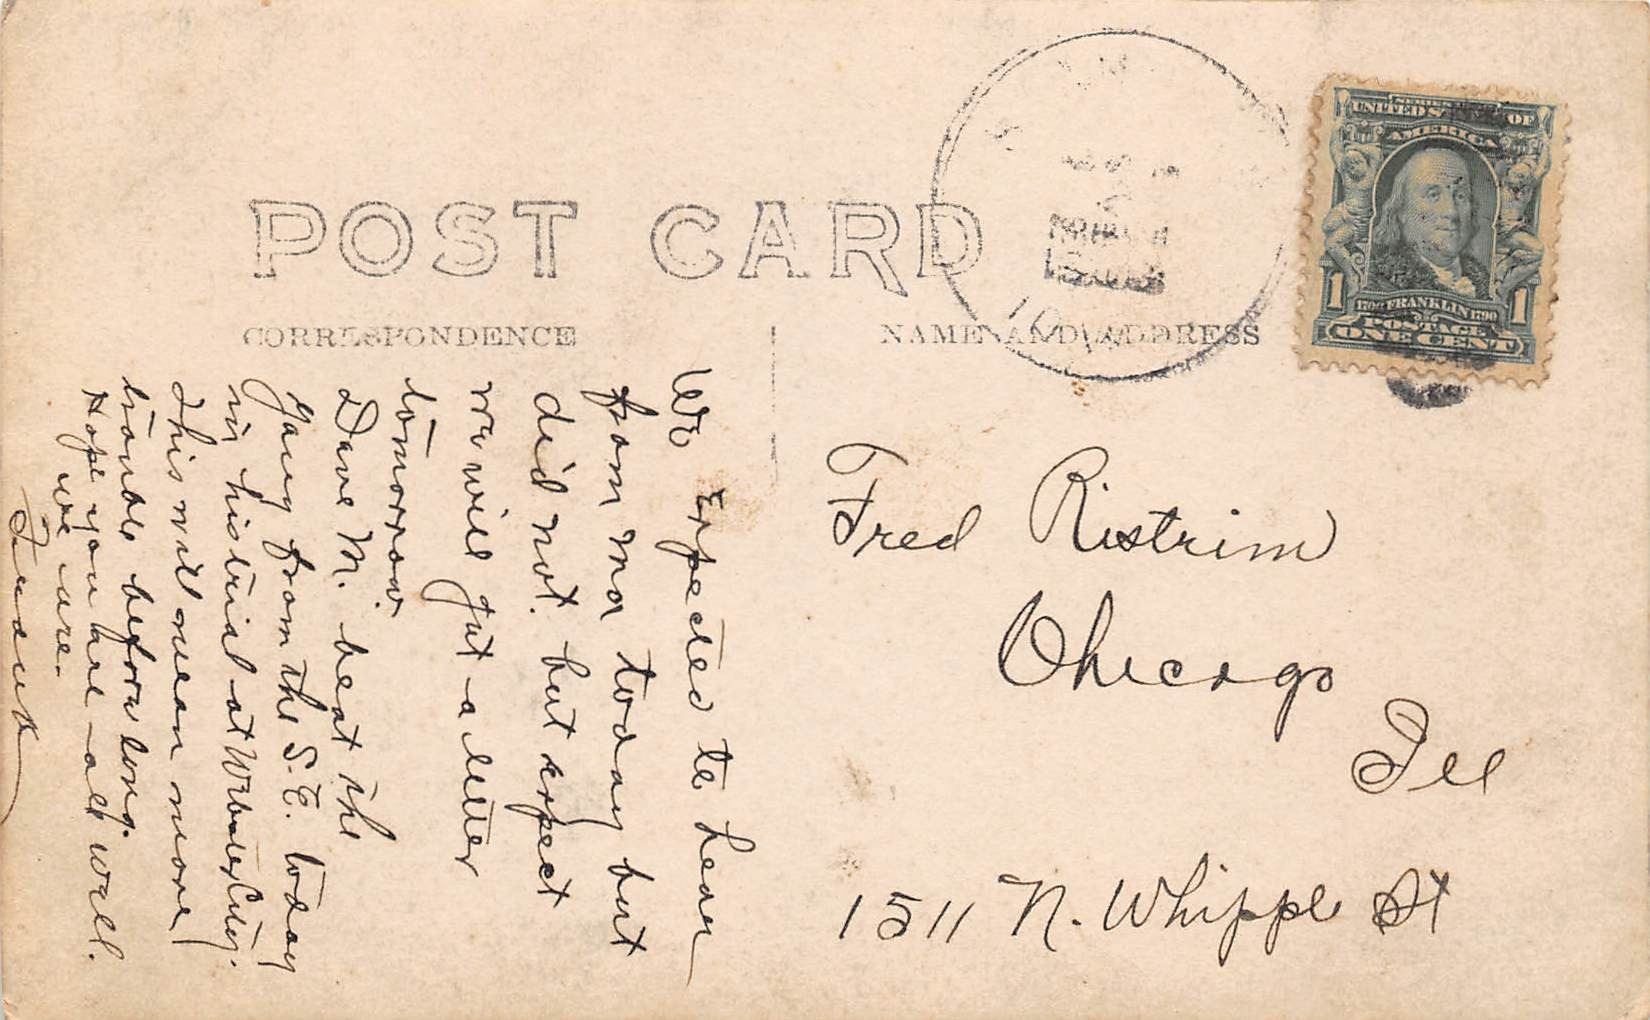 POST CARD
CORRESPONDENCE
NAME AND ADDRESS
IOWA
UNITED S OF
AMERICA
1 1
1706 FRANKLIN 1790
POSTAGE
ONE CENT
We Expected to hear
from Ma today but
did not. but expect
we will get a letter
tomorrow.
Dave M. beat the
Gang from the S.C. today
in his trial at Webster City.
This will mean more
trouble before long.
Hope you are all well.
we are.
Fred Ristrim
Chicago
Ill
1511 N. Whipple St